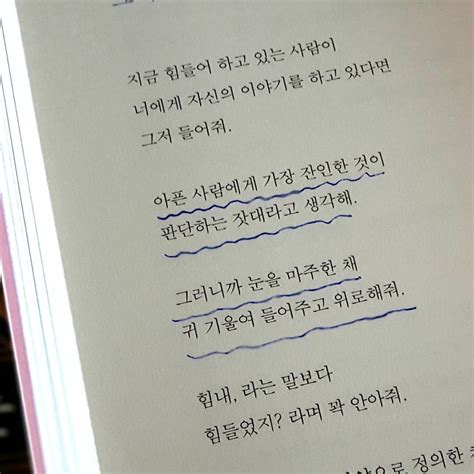 지금 힘들어 하고 있는 사람이
너에게 자신의 이야기를 하고 있다면
그저 들어줘.
아픈 사람에게 가장 잔인한 것이
판단하는 잣대라고 생각해.
그러니까 눈을 마주한 채
귀 기울여 들어주고 위로해줘.
힘내, 라는 말보다
힘들었지? 라며 꽉 안아줘.
정의한 채